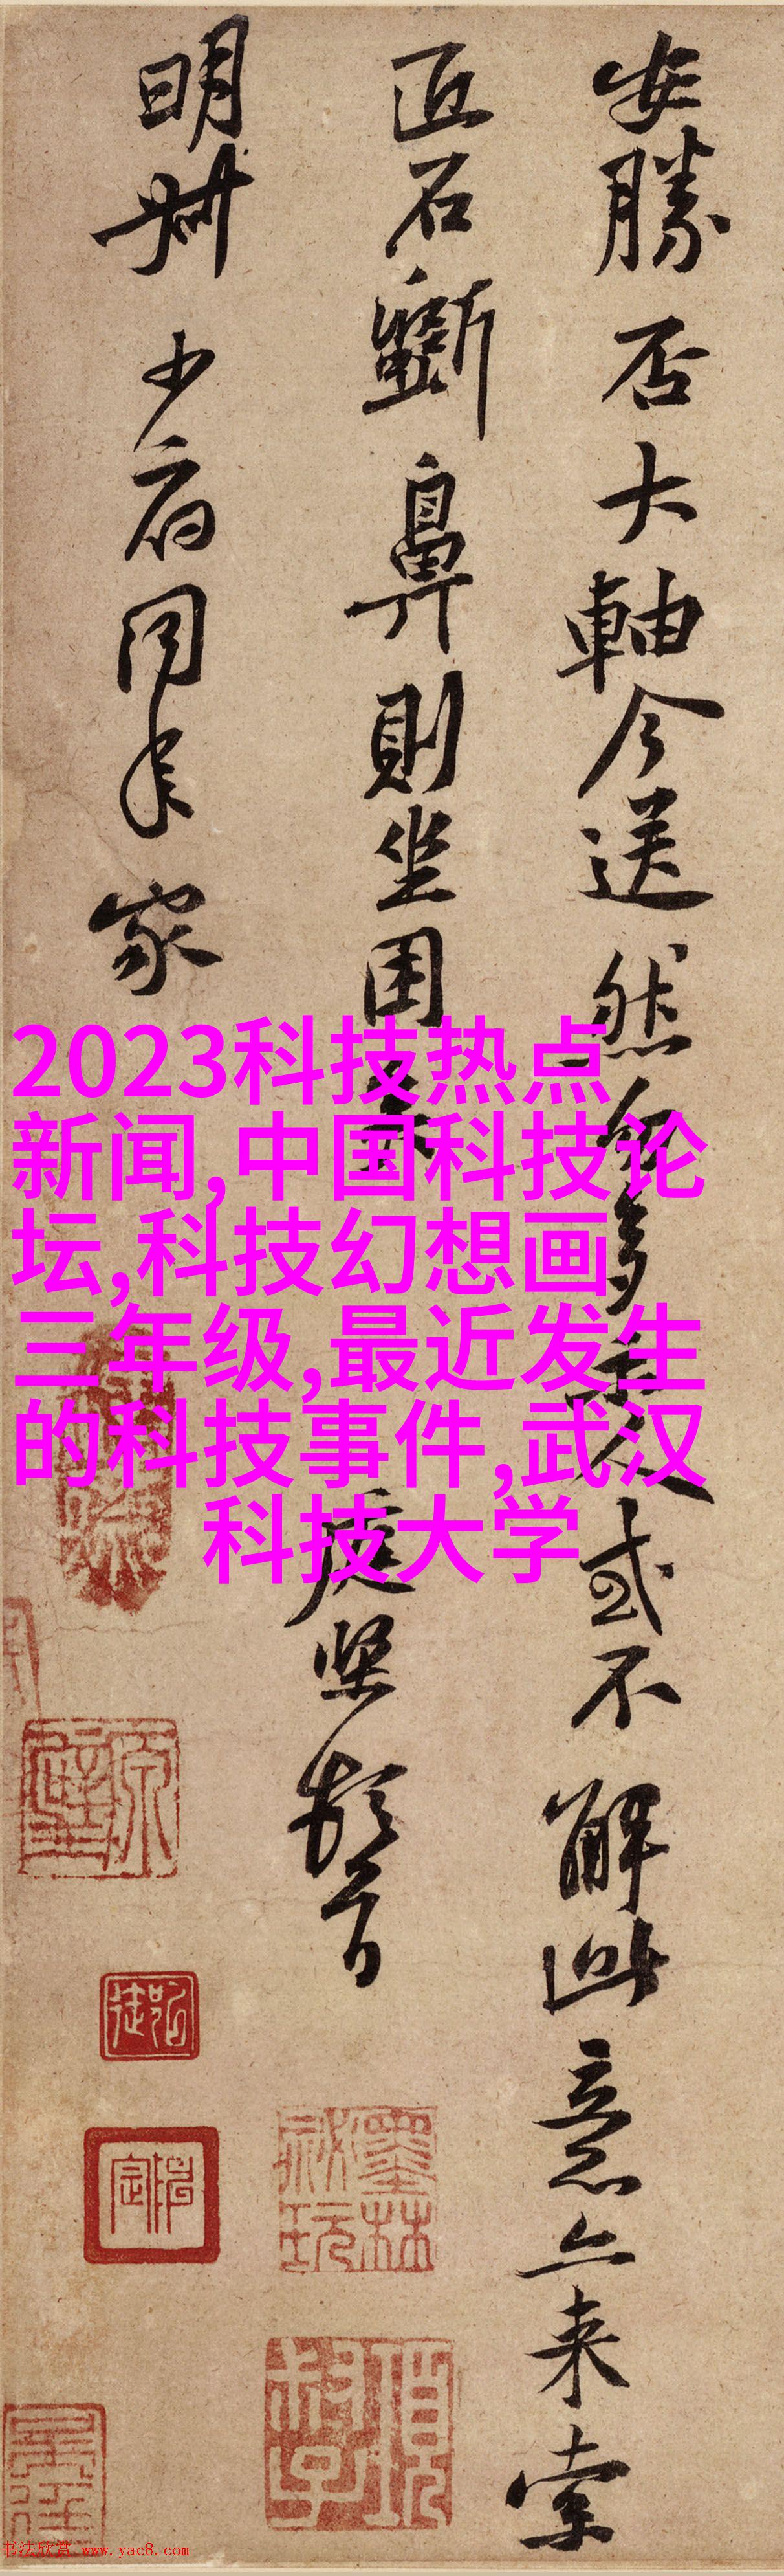 安勝否大軸今送然多人或不解此意亦来索
匠石斲鼻則坐困
庭堅頓首
明州少府同年家
2023科技热点
新闻,中国科技论
坛,科技幻想画
三年级,最近发生
的科技事件,武汉
科技大学
墨林
祕玩
书法欣赏 www.yac8.com